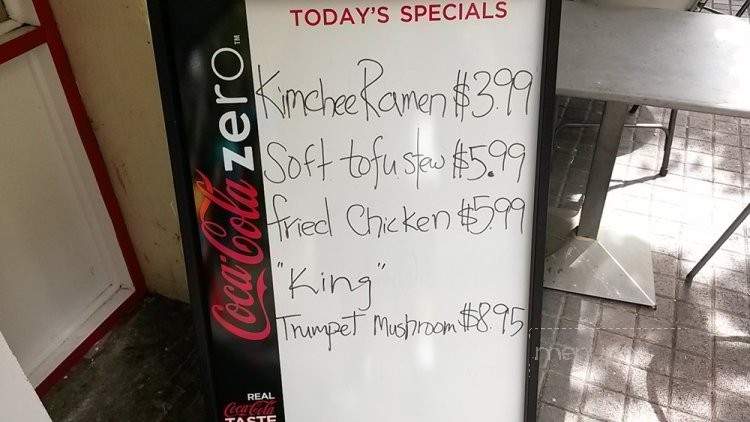 TODAY'S SPECIALS
Coca-Cola zero™
Kimchee Ramen $3.99
Soft tofu stew $5.99
fried Chicken $5.99
"King"
Trumpet Mushroom $8.95
REAL
Coca-Cola
TASTE